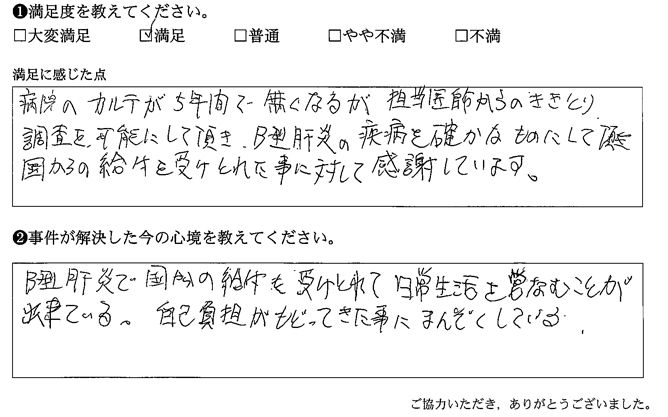 ❶満足度を教えてください。
□大変満足 ☑満足 □普通 □やや不満 □不満
満足に感じた点
病院のカルテが5年間で無くなるが 担当医師からのききとり
調査を可能にして頂き、B型肝炎の疾病を確かなものにして頂き
国からの給付を受けとれた事に対して感謝しています。
❷事件が解決した今の心境を教えてください。
B型肝炎で国からの給付を受けとれて日常生活を営なむことが
出来ている。自己負担がもどってきた事にまんぞくしている.
ご協力いただき、ありがとうございました。